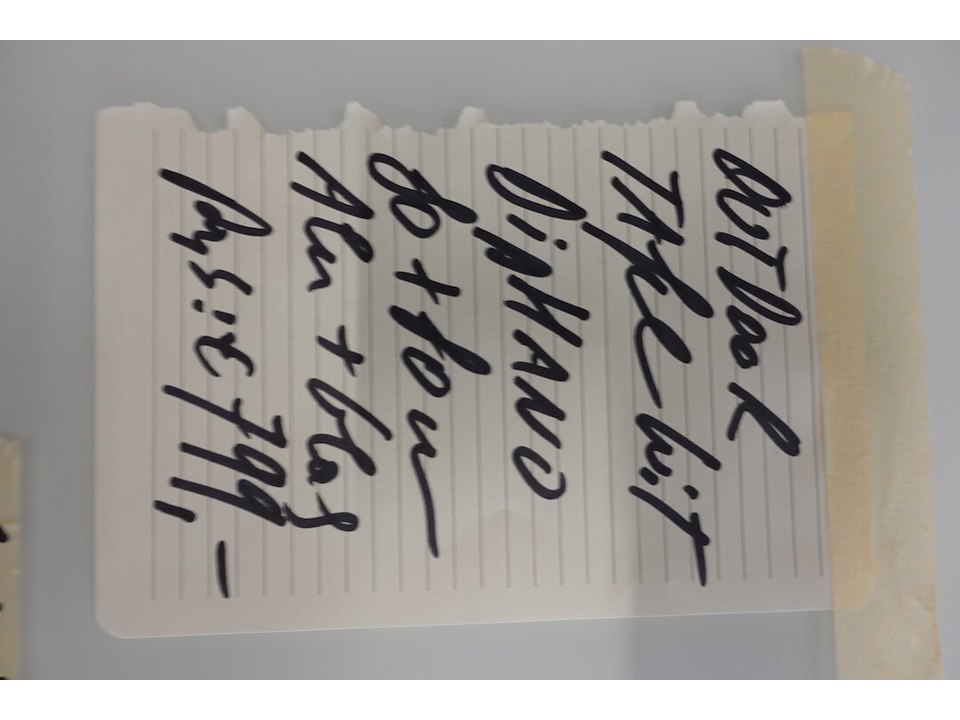 OUTDOOR
TAFEL wit
DIPHANO
80 +
Alu + glas
prijs: € 799,-